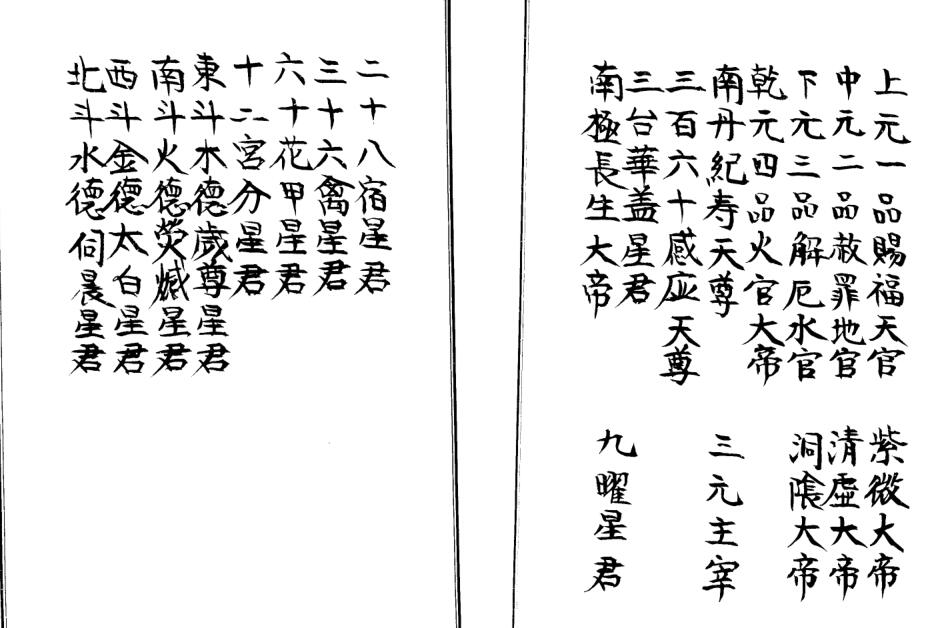 上元一品賜福天官 紫微大帝
中元二品赦罪地官 清虛大帝
下元三品解厄水官 洞陰大帝
乾元四品火官大帝
南丹紀寿天尊 三元主宰
三百六十感应天尊
三台華盖星君
南極長生大帝 九曜星君
二十八宿星君
三十六禽星君
六十花甲星君
十二宮分星君
東斗木德歲尊星君
南斗火德熒㷰星君
西斗金德太白星君
北斗水德伺晨星君